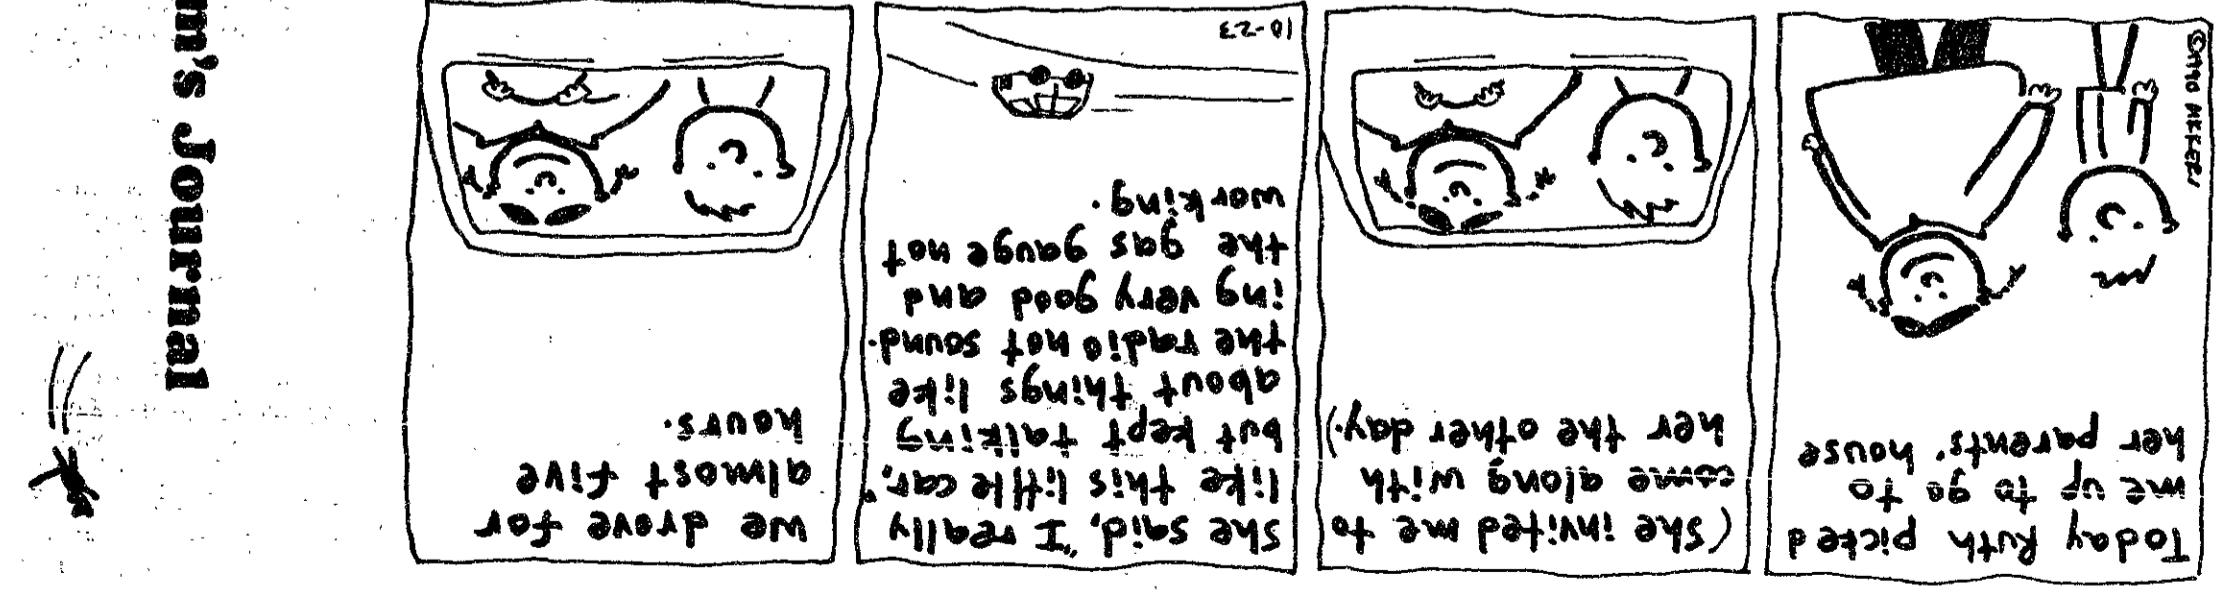 Today Ruth picked
me up to go to
her parents' house
©1990
(she invited me to
come along with
her the other day.)
She said, "I really
like this little car,"
but kept talking
about things like
the radio not sound-
ing very good and
the gas gauge not
working.
10-23
we drove for
almost five
hours.
m's Journal